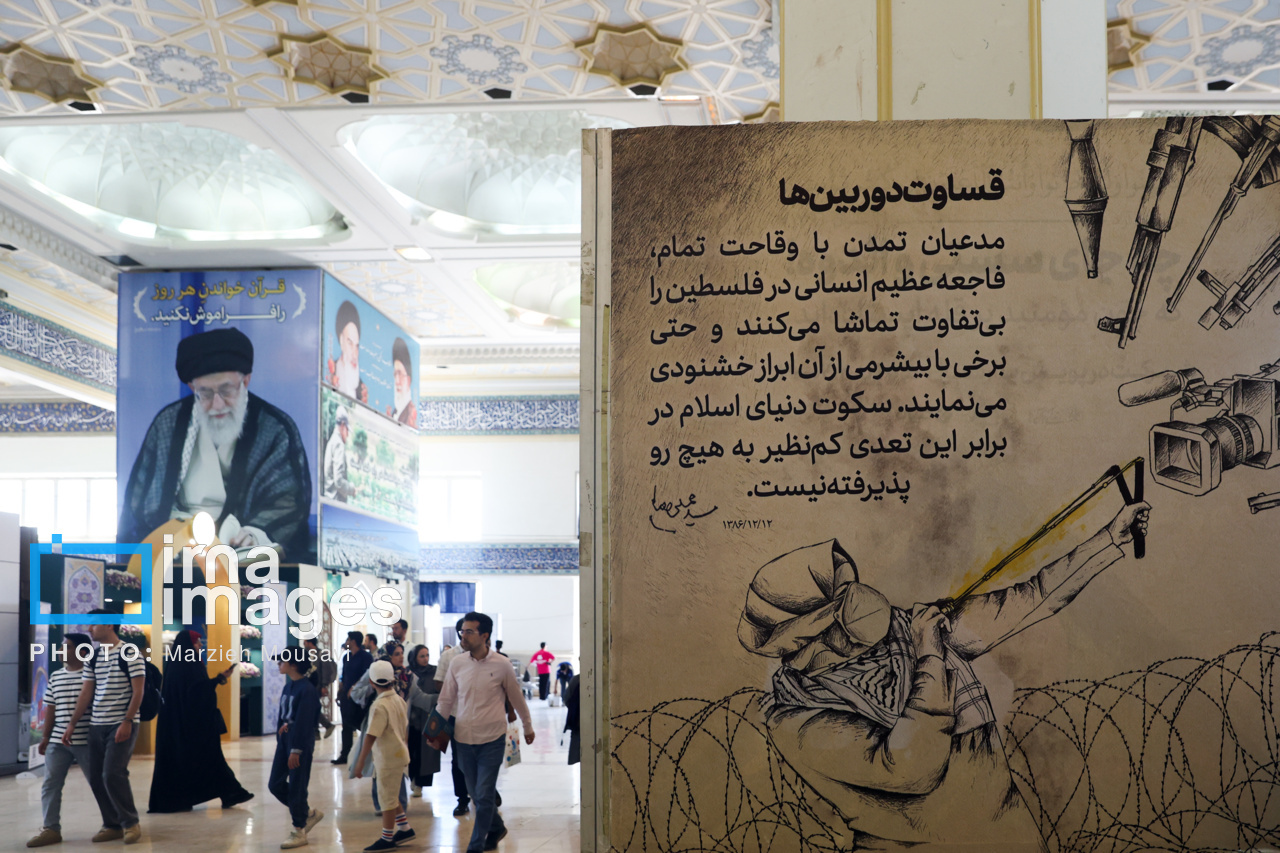 قساوت‌دوربین‌ها
مدعیان تمدن با وقاحت تمام،
فاجعه عظیم انسانی در فلسطین را
بی‌تفاوت تماشا می‌کنند و حتی
برخی با بیشرمی از آن ابراز خشنودی
می‌نمایند. سکوت دنیای اسلام در
برابر این تعدی کم‌نظیر به هیچ رو
پذیرفته‌نیست.
۱۳۸۶/۱۲/۱۲
قرآن خواندنِ هر روز
را فراموش نکنید.
irna
images
PHOTO: Marzieh Mousavi